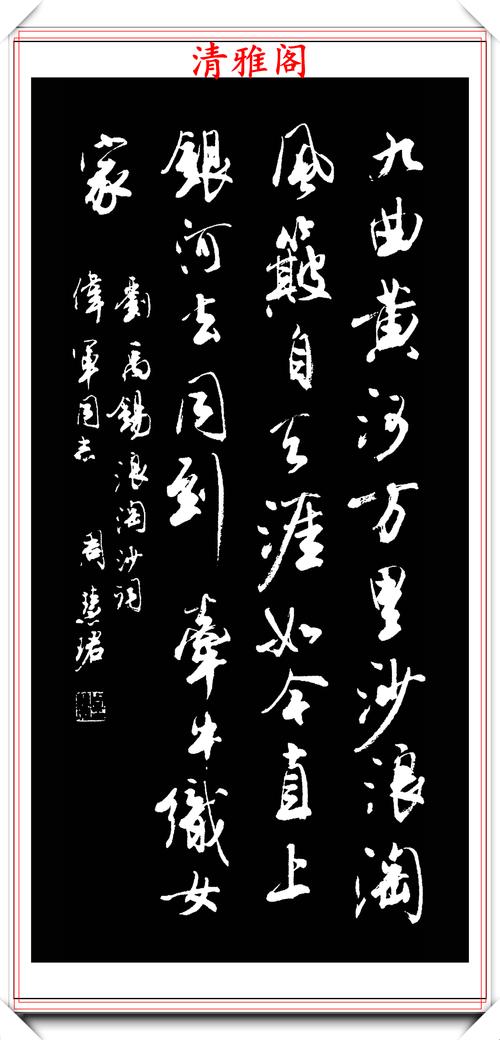 清雅阁
九曲黄河万里沙浪淘
风簸自天涯如今直上
銀河去同到牽牛織女
家
劉禹錫浪淘沙词
偉軍同志 周慧珺